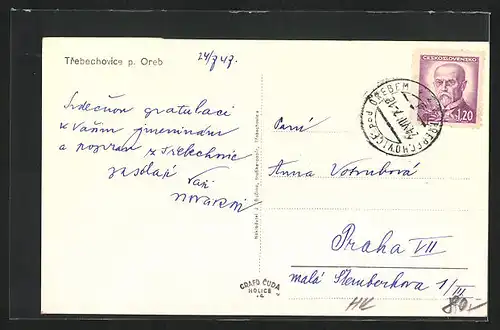 Třebechovice p. Oreb
24/7 47.
Srdečnou gratulaci
k Vašim jmeninám
a pozdrav z Třebechovic
zasílají Vaši
Paní
Anna Votrubová
Praha VII
malá Šternberkova 1/III
HK
80,-
ČESKOSLOVENSKO
1,20
TŘEBECHOVICE POD OREBEM
GRAFO ČUDA
HOLICE